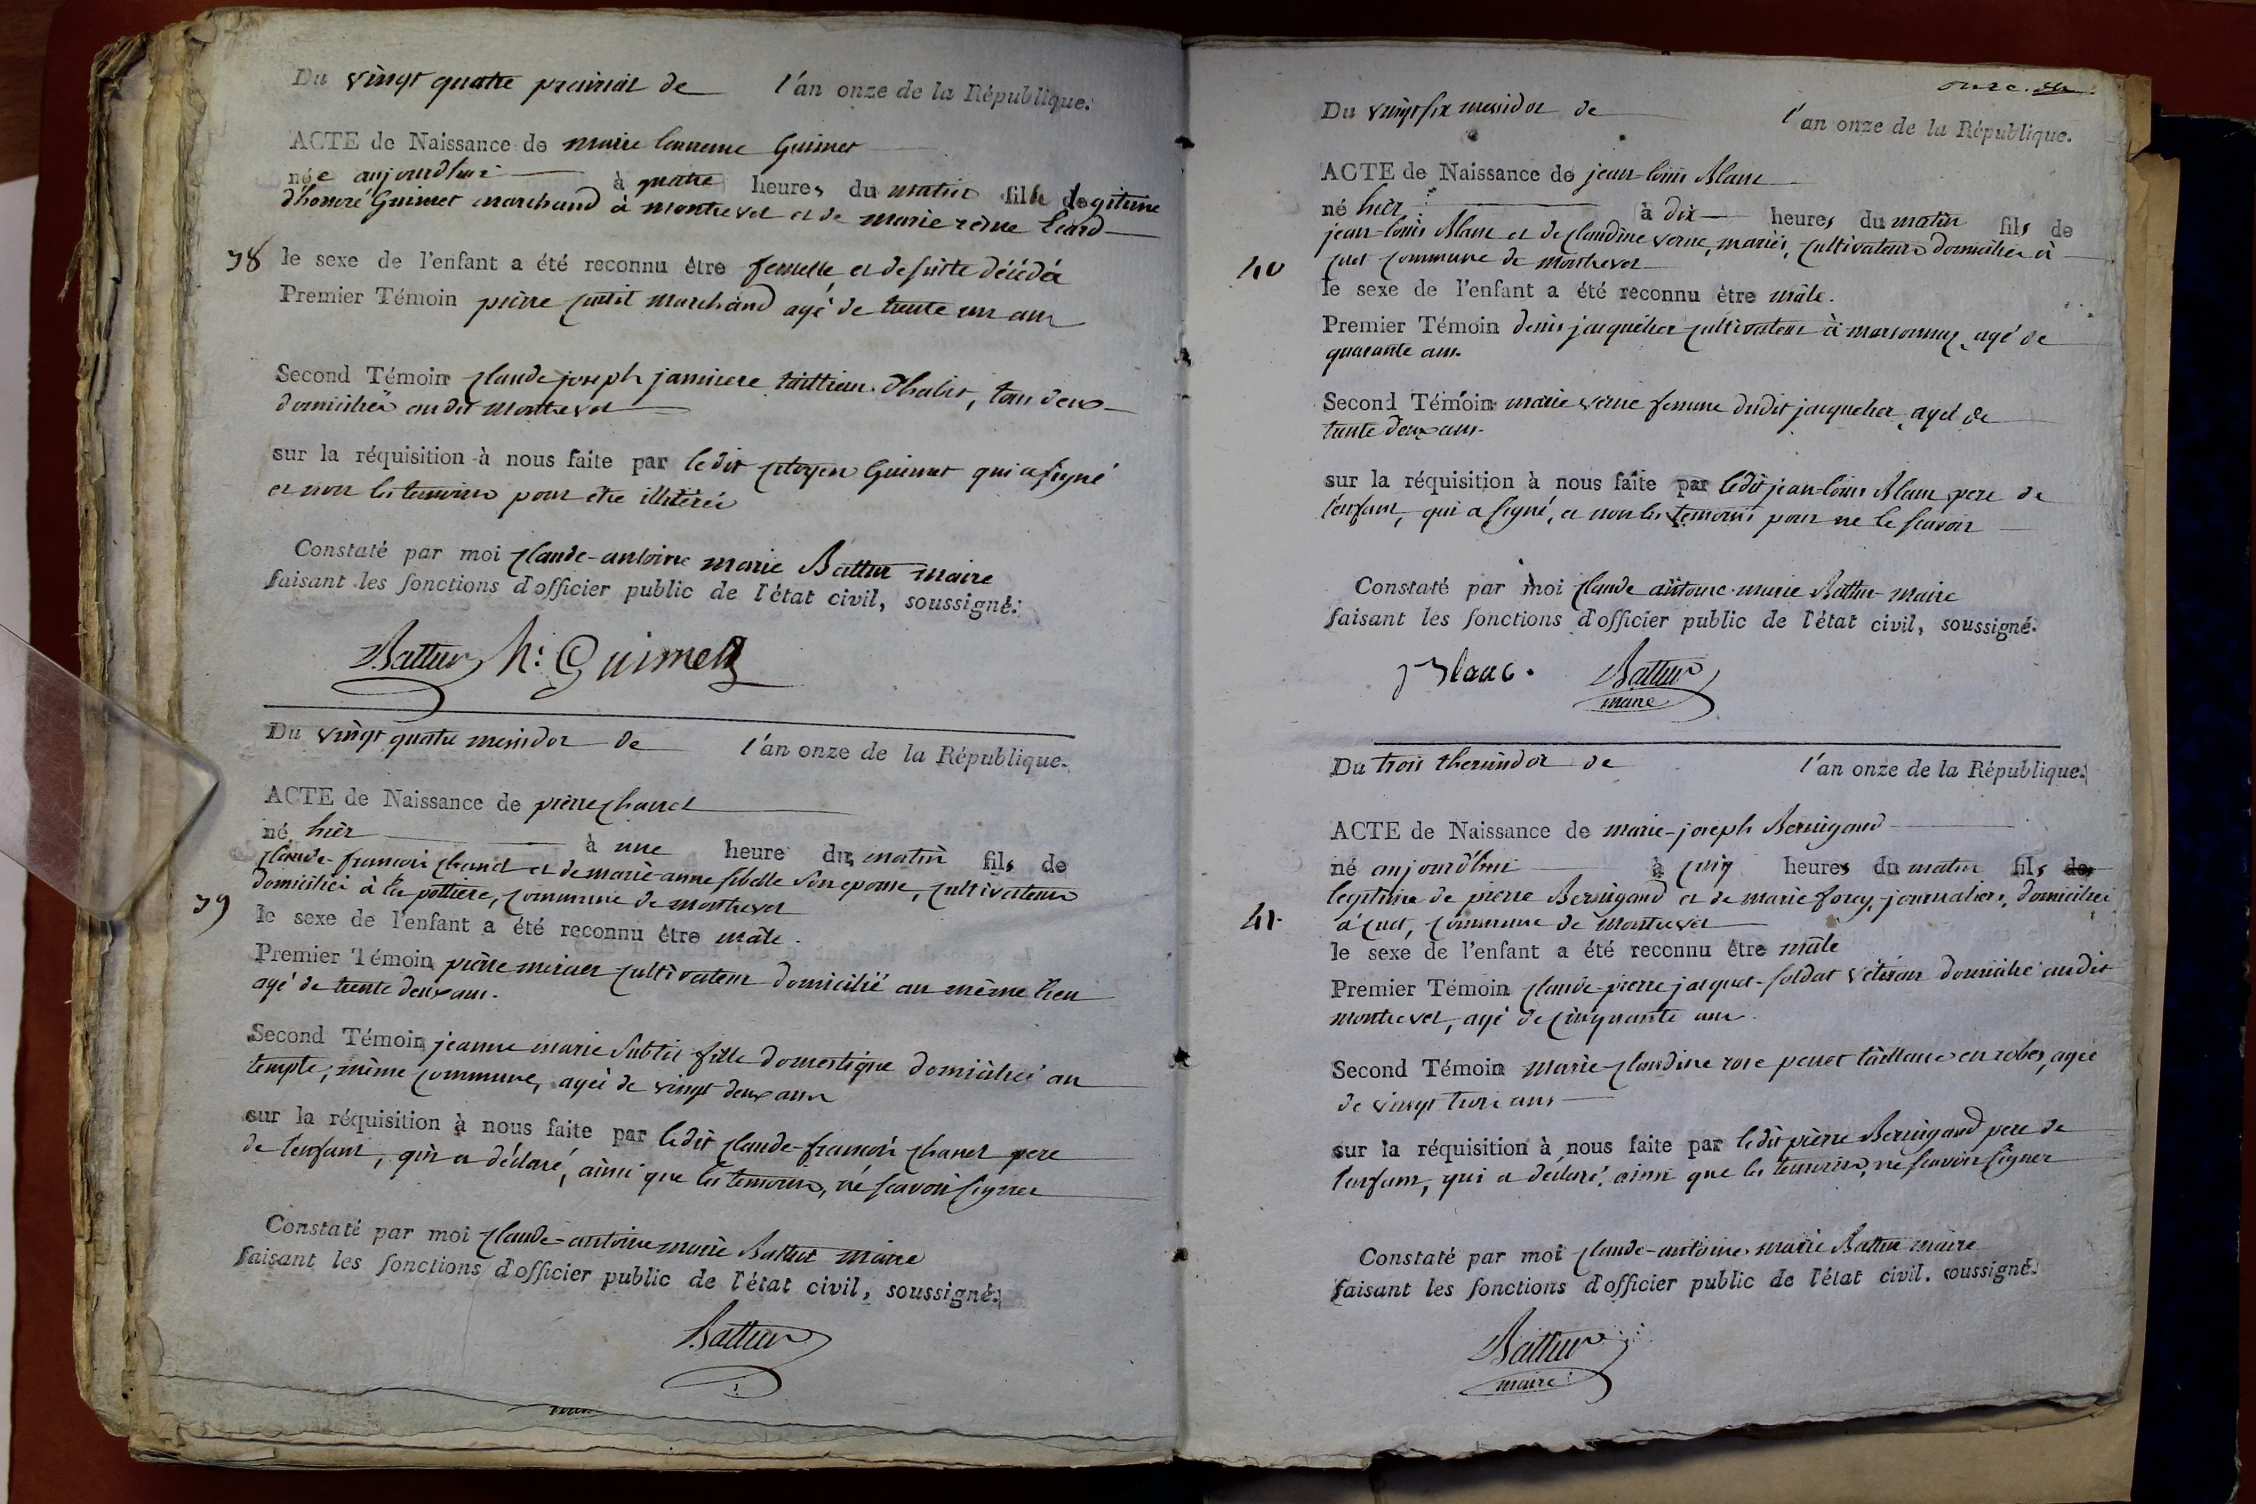 Du vingt quatre prairial de l'an onze de la République.
ACTE de Naissance de marie Guimet
née aujourdhui à quatre heures du matin fille legitime
d'honoré Guimet marchand à montrevel et de marie reine
38 le sexe de l'enfant a été reconnu être femelle, et de suite décédé
Premier Témoin pierre marchand agé de trente un ans
Second Témoin claude joseph tailleur d'habit, tous deux
domiciliés au dit montrevel
sur la réquisition à nous faite par ledit citoyen Guimet qui a signé
et non les temoins pour etre illitérés
Constaté par moi claude-antoine marie Battur maire
faisant les fonctions d'officier public de l'état civil, soussigné.
Battur h: Guimet
Du vingt quatre messidor de l'an onze de la République.
ACTE de Naissance de pierre chanel
né hièr à une heure du matin fils de
claude-françois chanel et de marie-anne sibelle son epouse, cultivateurs
domiciliés à la pottiere, commune de montrevel
39 le sexe de l'enfant a été reconnu être mâle.
Premier Témoin pierre mercier cultivateur domicilié au même lieu
agé de trente deux ans.
Second Témoin jeanne marie subtil fille domestique domiciliée au
temple, même commune, agée de vingt deux ans
sur la réquisition à nous faite par ledit claude-françois chanel pere
de l'enfant, qui a déclaré, ainsi que les temoins, ne scavoir signer
Constaté par moi claude-antoine marie Battur maire
faisant les fonctions d'officier public de l'état civil, soussigné.
Battur
onze.
Du vingt six messidor de l'an onze de la République.
ACTE de Naissance de jean-louis Blanc
né hièr à dix heures du matin fils de
jean-louis Blanc et de claudine verne, mariés, cultivateurs domiciliés à
cuet commune de montrevel
40 le sexe de l'enfant a été reconnu être mâle.
Premier Témoin denis jacquelier cultivateur à marsonnay, agé de
quarante ans.
Second Témoin marie verne femme dudit jacquelier, agée de
trente deux ans.
sur la réquisition à nous faite par ledit jean-louis Blanc pere de
l'enfant, qui a signé, et non les temoins pour ne le scavoir
Constaté par moi claude antoine-marie Battur maire
faisant les fonctions d'officier public de l'état civil, soussigné.
j Blanc. Battur
maire
Du trois thermidor de l'an onze de la République.
ACTE de Naissance de marie-joseph Bernigaud
né aujourd'hui à cinq heures du matin fils
legitime de pierre Bernigaud et de marie forey, journaliers, domiciliés
à cuet, commune de montrevel
41 le sexe de l'enfant a été reconnu être mâle
Premier Témoin claude-pierre jacquet-soldat véteran domicilié audit
montrevel, agé de cinquante ans
Second Témoin marie-claudine rose perret tailleuse en robes, agée
de vingt trois ans
sur la réquisition à nous faite par ledit pierre Bernigaud pere de
l'enfant, qui a déclaré, ainsi que les temoins, ne scavoir signer
Constaté par moi claude-antoine marie Battur maire
faisant les fonctions d'officier public de l'état civil, soussigné.
Battur
maire